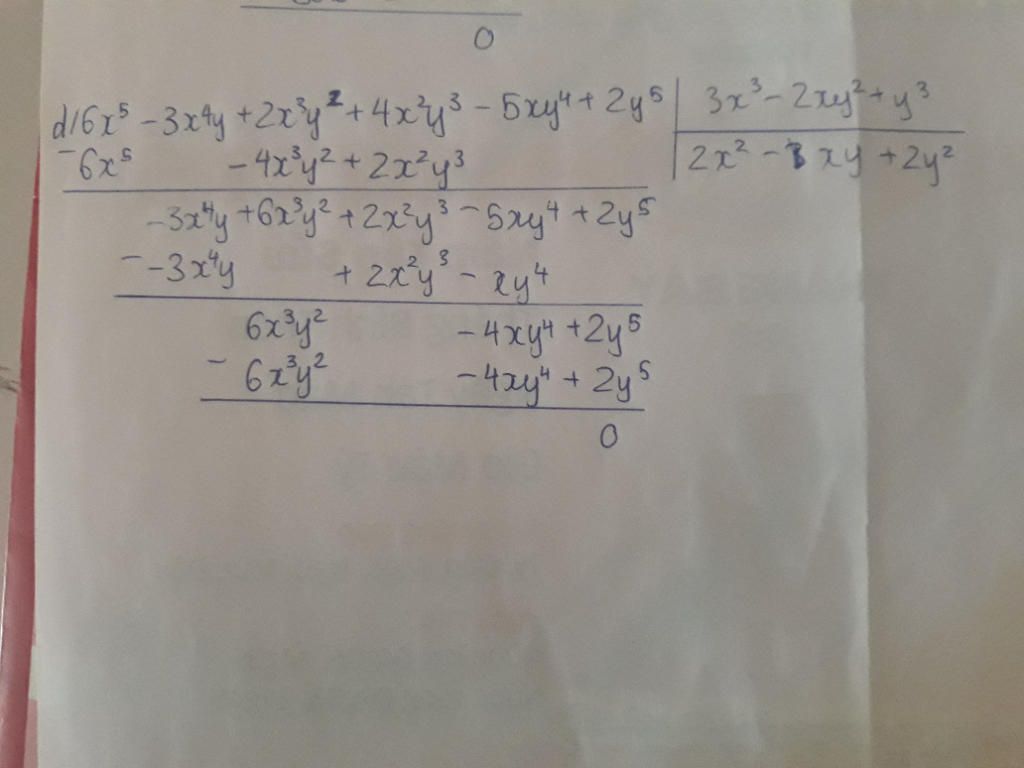 0
d/ 6x⁵ - 3x⁴y + 2x³y² + 4x²y³ - 5xy⁴ + 2y⁵ | 3x³ - 2xy² + y³
- 6x⁵ - 4x³y² + 2x²y³ | 2x² - xy + 2y²
-3x⁴y + 6x³y² + 2x²y³ - 5xy⁴ + 2y⁵
- -3x⁴y + 2x²y³ - xy⁴
6x³y² - 4xy⁴ + 2y⁵
- 6x³y² - 4xy⁴ + 2y⁵
0